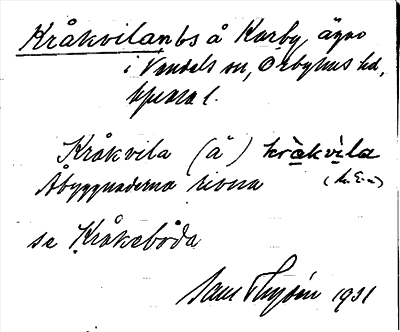 Kråkvilan bs å Karby ägor
i Vendels sn, Örbyhus hd,
Uppsala l.
Kråkvila (ä) kràkvìla
Åbyggnaderna rivna
se Kråkeboda
1931